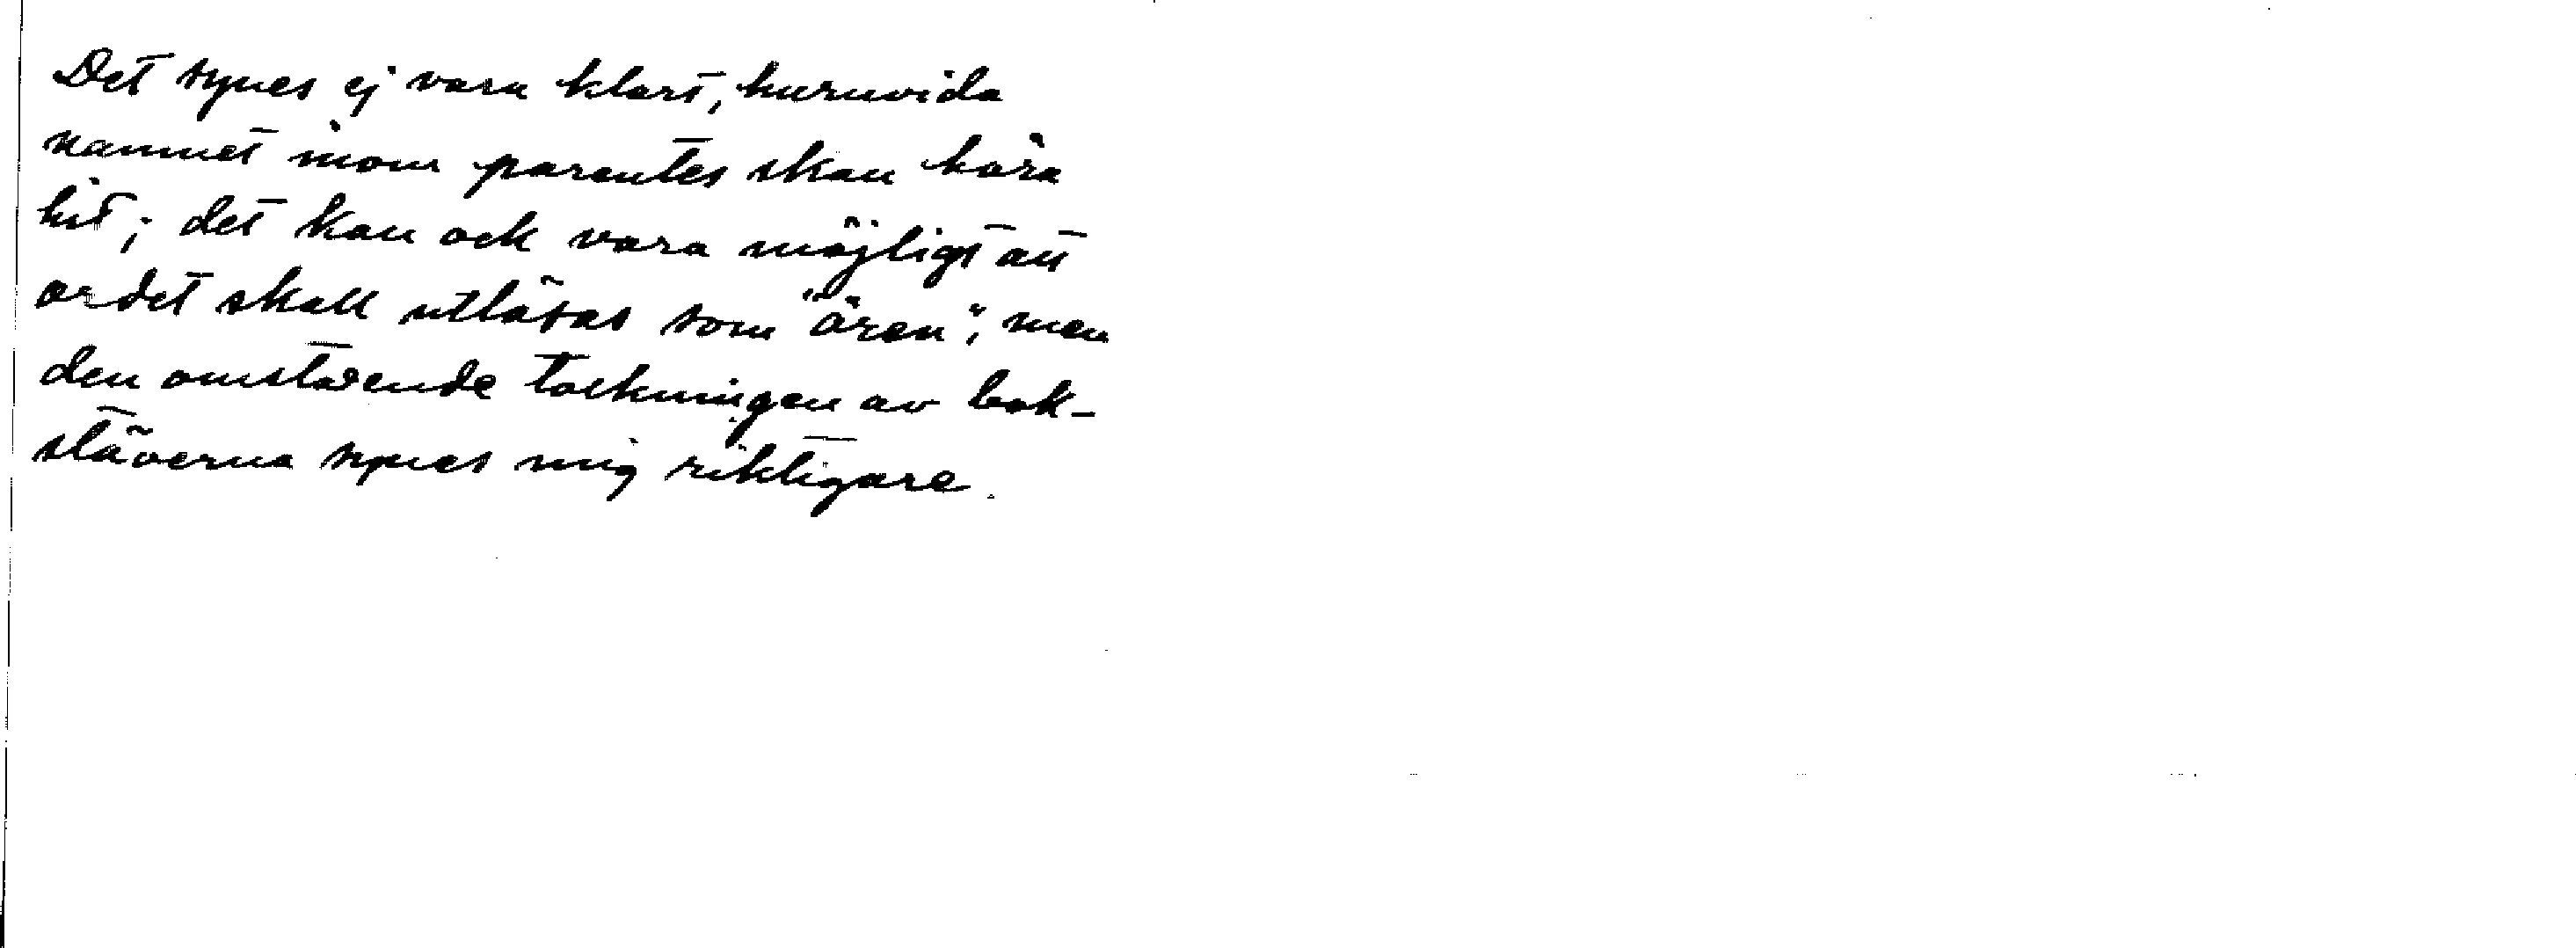 Det synes ej vara klart, huruvida
namnet inom parentes skall höra
hit; det kan ock vara möjligt att
ordet skall utläsas som "ären", men
den omstående tolkningen av bok-
stäverna synes mig riktigare.